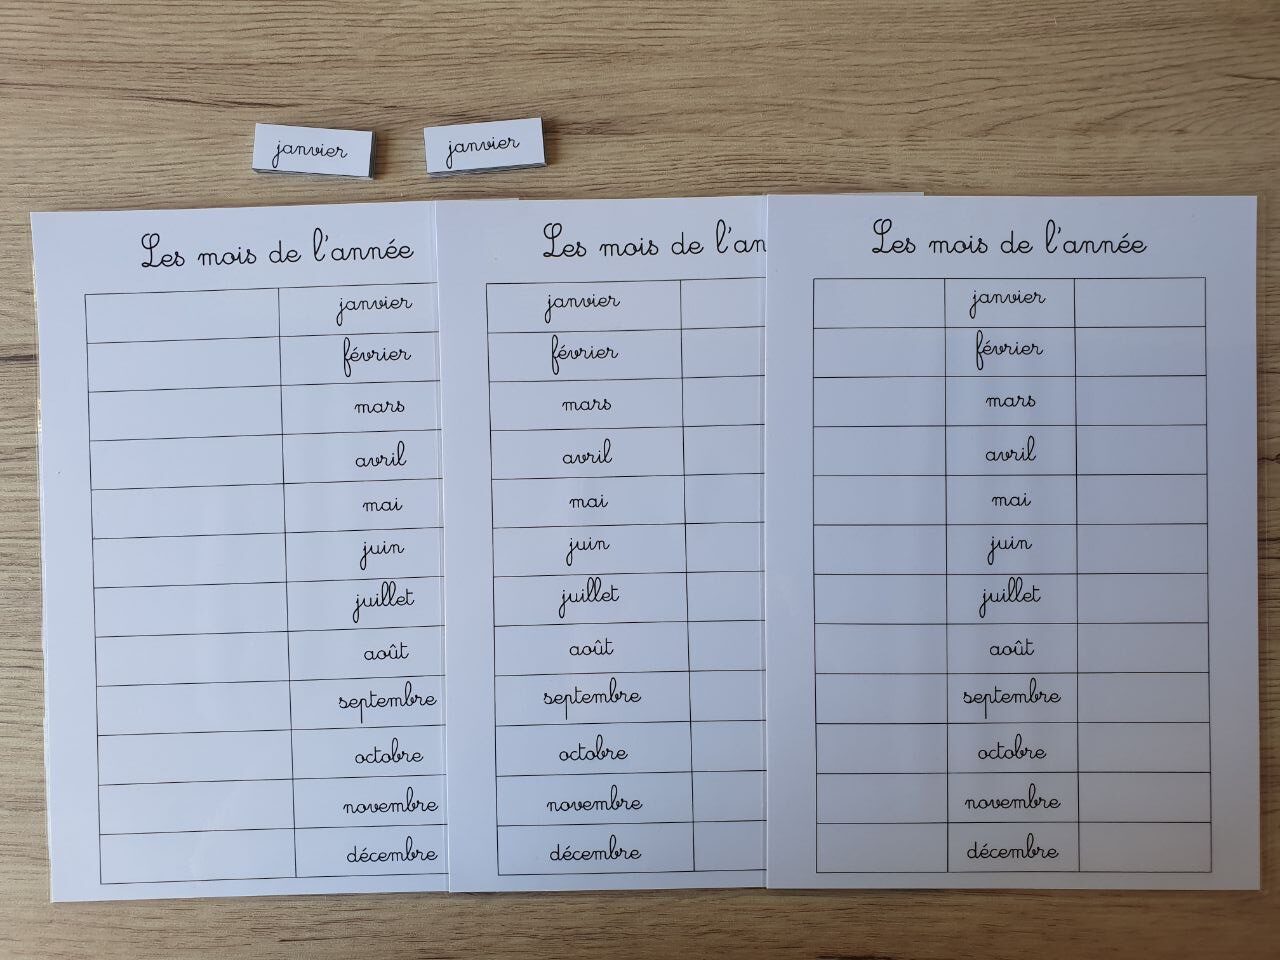 janvier
janvier
Les mois de l'année
janvier
février
mars
avril
mai
juin
juillet
août
septembre
octobre
novembre
décembre
Les mois de l'an
janvier
février
mars
avril
mai
juin
juillet
août
septembre
octobre
novembre
décembre
Les mois de l'année
janvier
février
mars
avril
mai
juin
juillet
août
septembre
octobre
novembre
décembre